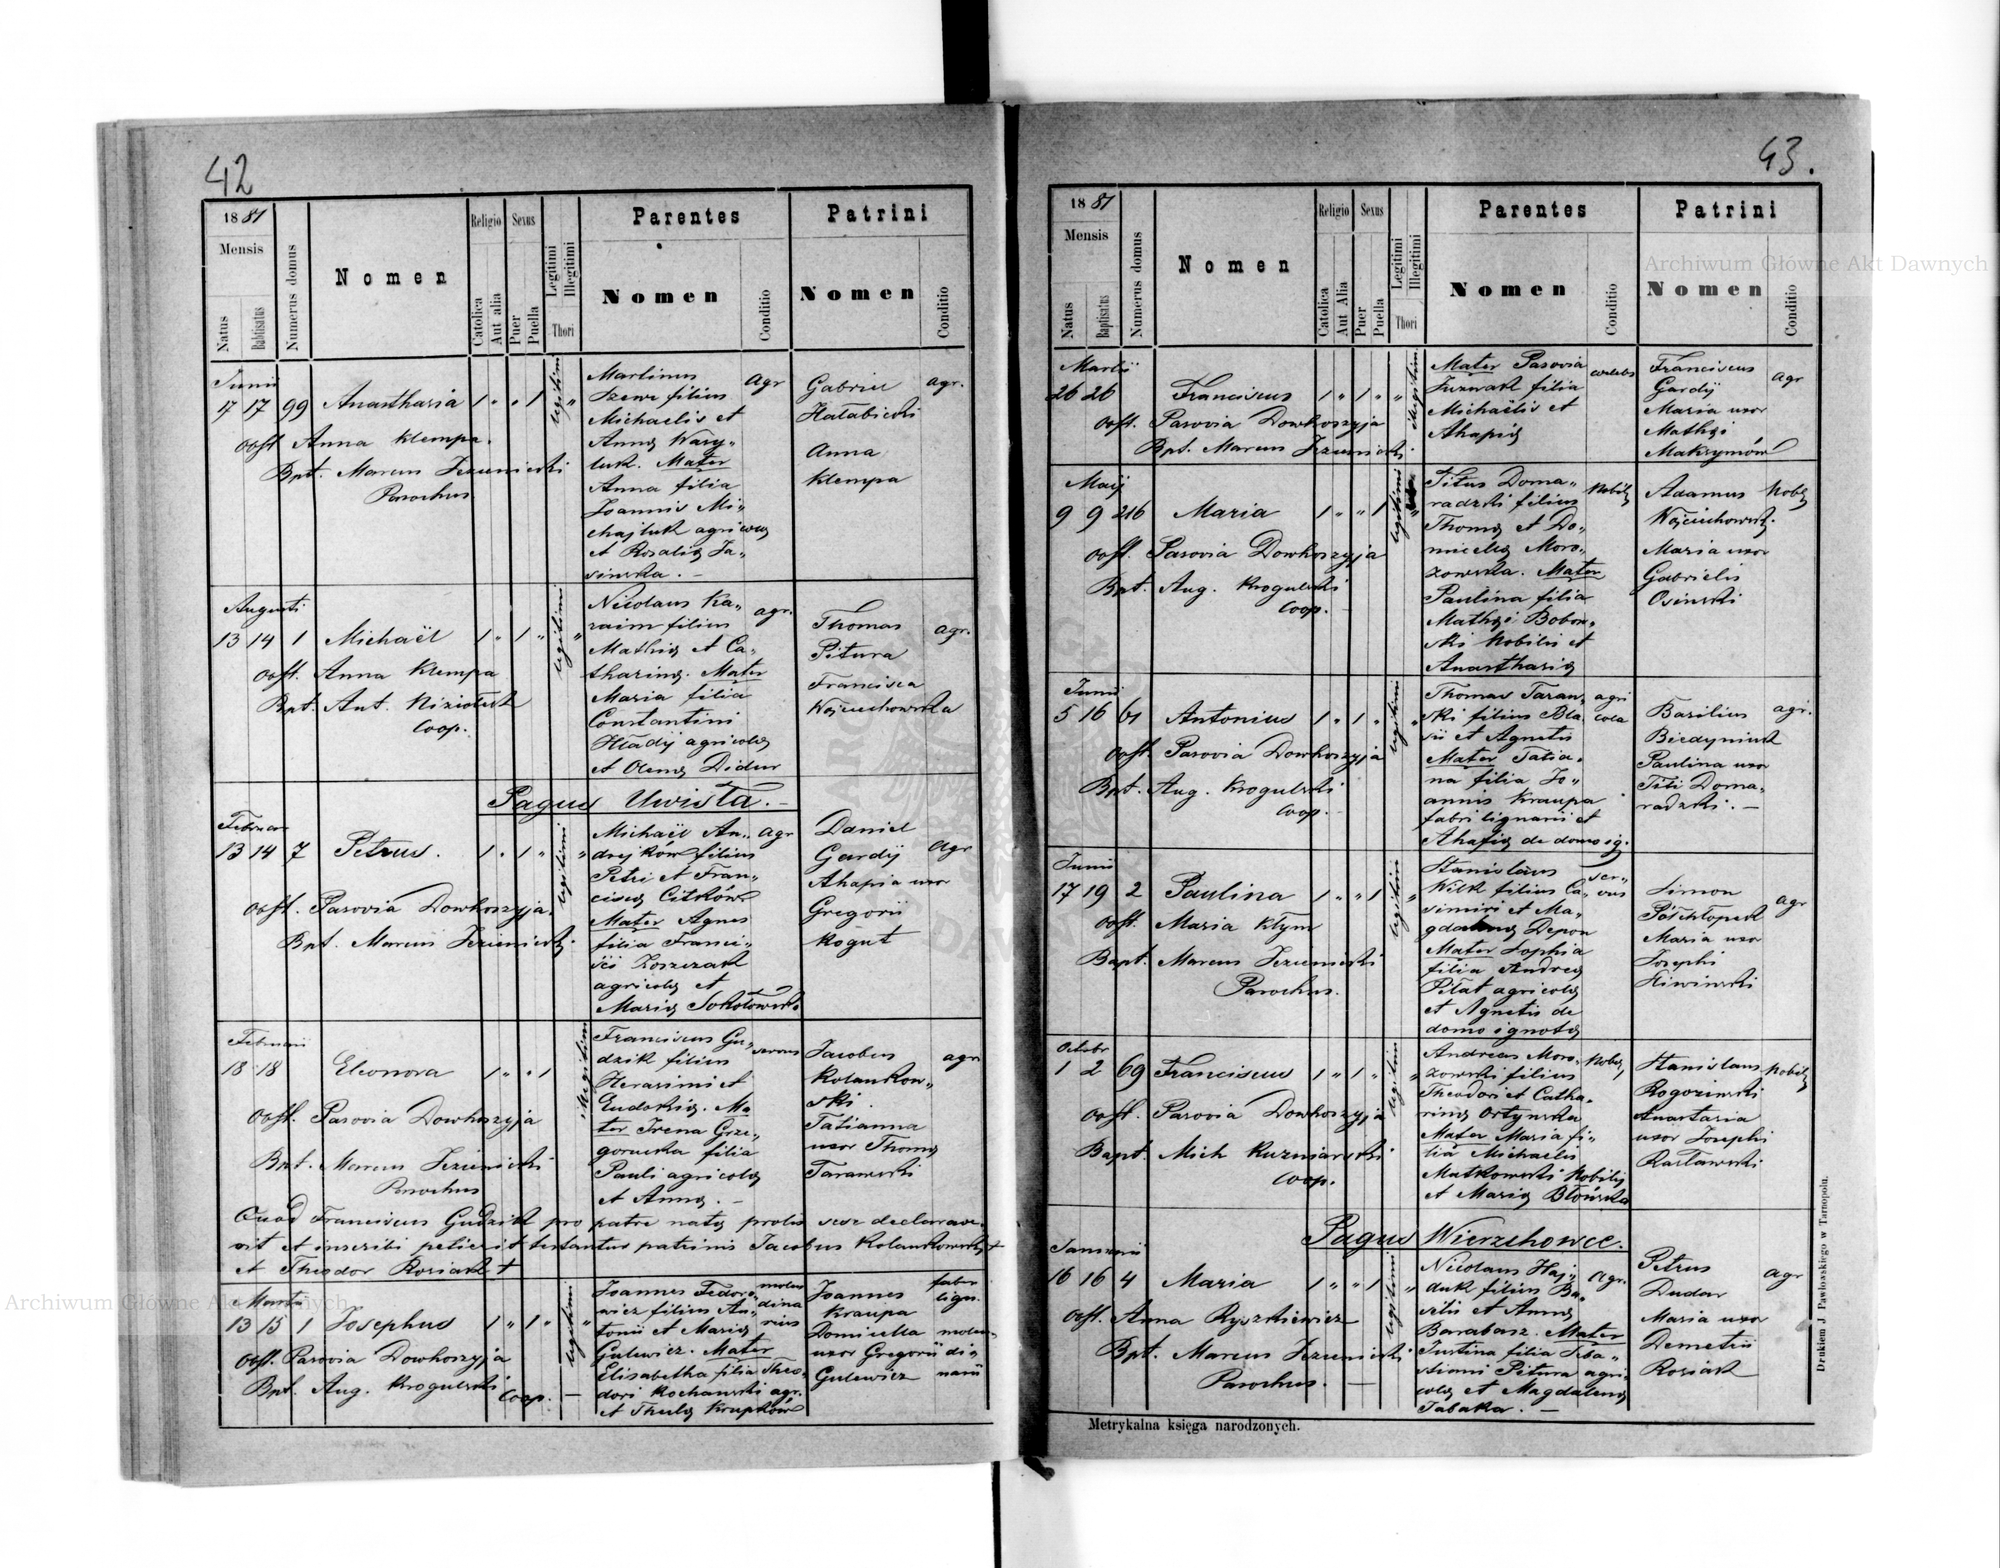 42
1881
Mensis
Natus
Babtisatus
Numerus domus
Nomen
Religio
Catolica
Aut alia
Sexus
Puer
Puella
Legitimi
Illegitimi
Thori
Parentes
Nomen
Conditio
Patrini
Nomen
Conditio
Junii
17 17 99 Anastharia 1 " " 1 legitimi "
obst. Anna Klempa.
Bpt. Marcus Jezienicki
Parochus
Martinus
filius
Michaelis et
Annę Wasy-
luk. Mater
Anna filia
Joannis Mi-
chajluk agricolę
et Rosalię Ja-
sinska. —
agr
Gabriel
Hałabicki
Anna
Klempa
agr.
Augusti
13 14 1 Michaël 1 " 1 " legitimi "
obst. Anna Klempa
Bpt. Ant. Niziołek
Coop.
Nicolaus Ka-
raim filius
Mathię et Ca-
tharinę. Mater
Maria filia
Constantini
Hładij agricolę
et Olenę Didur
agr.
Thomas
Pitura
Francisca
Wojciechowska
agr.
Pagus Uwisła. —
Februar
13 14 7 Petrus. 1 " 1 " legitimi "
obst. Parovia Dowhoszyja.
Bpt. Marcus Jezienicki.
Michaël An-
drejków filius
Petri et Fran-
ciscę Citków
Mater Agnes
filia Franci-
sci Koszczak
agricolę et
Marię Sokołowska
agr
Daniel
Gardij
Ahapia uxor
Gregorii
Kogut
agr
Februarii
18 18 Eleonora 1 " " 1 illegitimi
obst. Parovia Dowhoszyja
Bpt. Marcus Jezienicki
Parochus
Franciscus Gu-
dzik filius
Herasimi et
Eudokię. Ma-
ter Irena Grze-
gorucka filia
Pauli agricolę
et Annę. —
servus
Jacobus
Kolankow-
ski.
Tatianna
uxor Thomę
Taranski
agr
Quod Franciscus Gudzik pro patre natę prolis sese declarave-
rit et inscribi petierit testantur patrinis Jacobus Kolankowski +
et Theodor Rosiak +
Martii
13 15 1 Josephus 1 " 1 " legitimi "
obst. Parovia Dowhoszyja
Bpt. Aug. Krogulski Coop. —
Joannes Fedoro-
wicz filius An-
tonii et Marię
Gulewicz. Mater
Elisabetha filia Theo-
dori Kochanski agr.
et Theclę Krupków
molen
dina
rius
Joannes
Kraupa
Domicella
uxor Gregorii
Gulewicz
faber
lign.
molen-
di-
narii
43.
1881
Mensis
Natus
Baptisatus
Numerus domus
Nomen
Religio
Catolica
Aut Alia
Sexus
Puer
Puella
Legitimi
Illegitimi
Thori
Parentes
Nomen
Conditio
Patrini
Nomen
Conditio
Martii
26 26 Franciscus 1 " 1 " " illegitim
obst. Parovia Dowhoszyja
Bpt. Marcus Jezienicki
Mater Parovia
Kuzwak filia
Michaëlis et
Ahapię
celebs
Franciscus
Gardij
Maria uxor
Mathęi
Maksymów
agr
Maij
9 9 216 Maria 1 " " 1 legitimi
obst. Parovia Dowhoszyja
Bpt. Aug. Krogulski
Coop.
Titus Doma-
radzki filius
Thomę et Do-
micellę Moro-
zowska. Mater
Paulina filia
Mathęi Bobow-
ski Nobilis et
Anasthasię
Nobilę
Adamus
Wojciechowski.
Maria uxor
Gabrielis
Osinski
Nobilę
Junii
5 16 61 Antonius 1 " 1 " legitimi "
obst. Parovia Dowhoszyja
Bpt. Aug. Krogulski
Coop.
Thomas Taran-
ski filius Bla-
sii et Agnetis
Mater Tatia-
na filia Jo-
annis Kraupa
fabri lignarii et
Ahafię de domo ig.
agri
cola
Basilius
Biedyniuk
Paulina uxor
Titi Doma-
radzki. —
agr.
Junii
17 19 2 Paulina 1 " " 1 legitim "
obst. Maria Kłym
Bapt. Marcus Jezienicki
Parochus.
Stanislaus
Wilk filius Ca-
simiri et Ma-
gdalenę Depon
Mater Sophia
filia Andreę
Piłat agricolę
et Agnetis de
domo ignotę
ser-
vus
Simon
Półchłopek
Maria uxor
Josephi
Siwinski
agr
Octobr
1 2 69 Franciscus 1 " 1 " legitim "
obst. Parovia Dowhoszyja
Bapt. Mich Kuzniarski
Coop.
Andreas Moro-
zowski filius
Theodori et Catha-
rinę Ortynska
Mater Maria fi-
lia Michaelis
Matkowski Nobilis
et Marię Błońska
Nobilę
Stanislaus
Rogozinski
Anastasia
uxor Josephi
Racławski
Nobilę
Pagus Wierzchowce.
Januarii
16 16 4 Maria 1 " " 1 legitimi "
obst. Anna Ryszkiewicz
Bpt. Marcus Jezienicki
Parochus. —
Nicolaus Haj-
duk filius Ba-
silii et Annę
Barabasz. Mater
Justina filia Seba-
stiani Pitura agri-
colę et Magdalenę
Tabaka. —
Agr.
Petrus
Dudar
Maria uxor
Demetrii
Rosiak
agr
Metrykalna księga narodzonych.
Drukiem J. Pawłoaskiego w Tarnopolu.
Archiwum Główne Akt Dawnych
Archiwum Główne Akt Dawnych